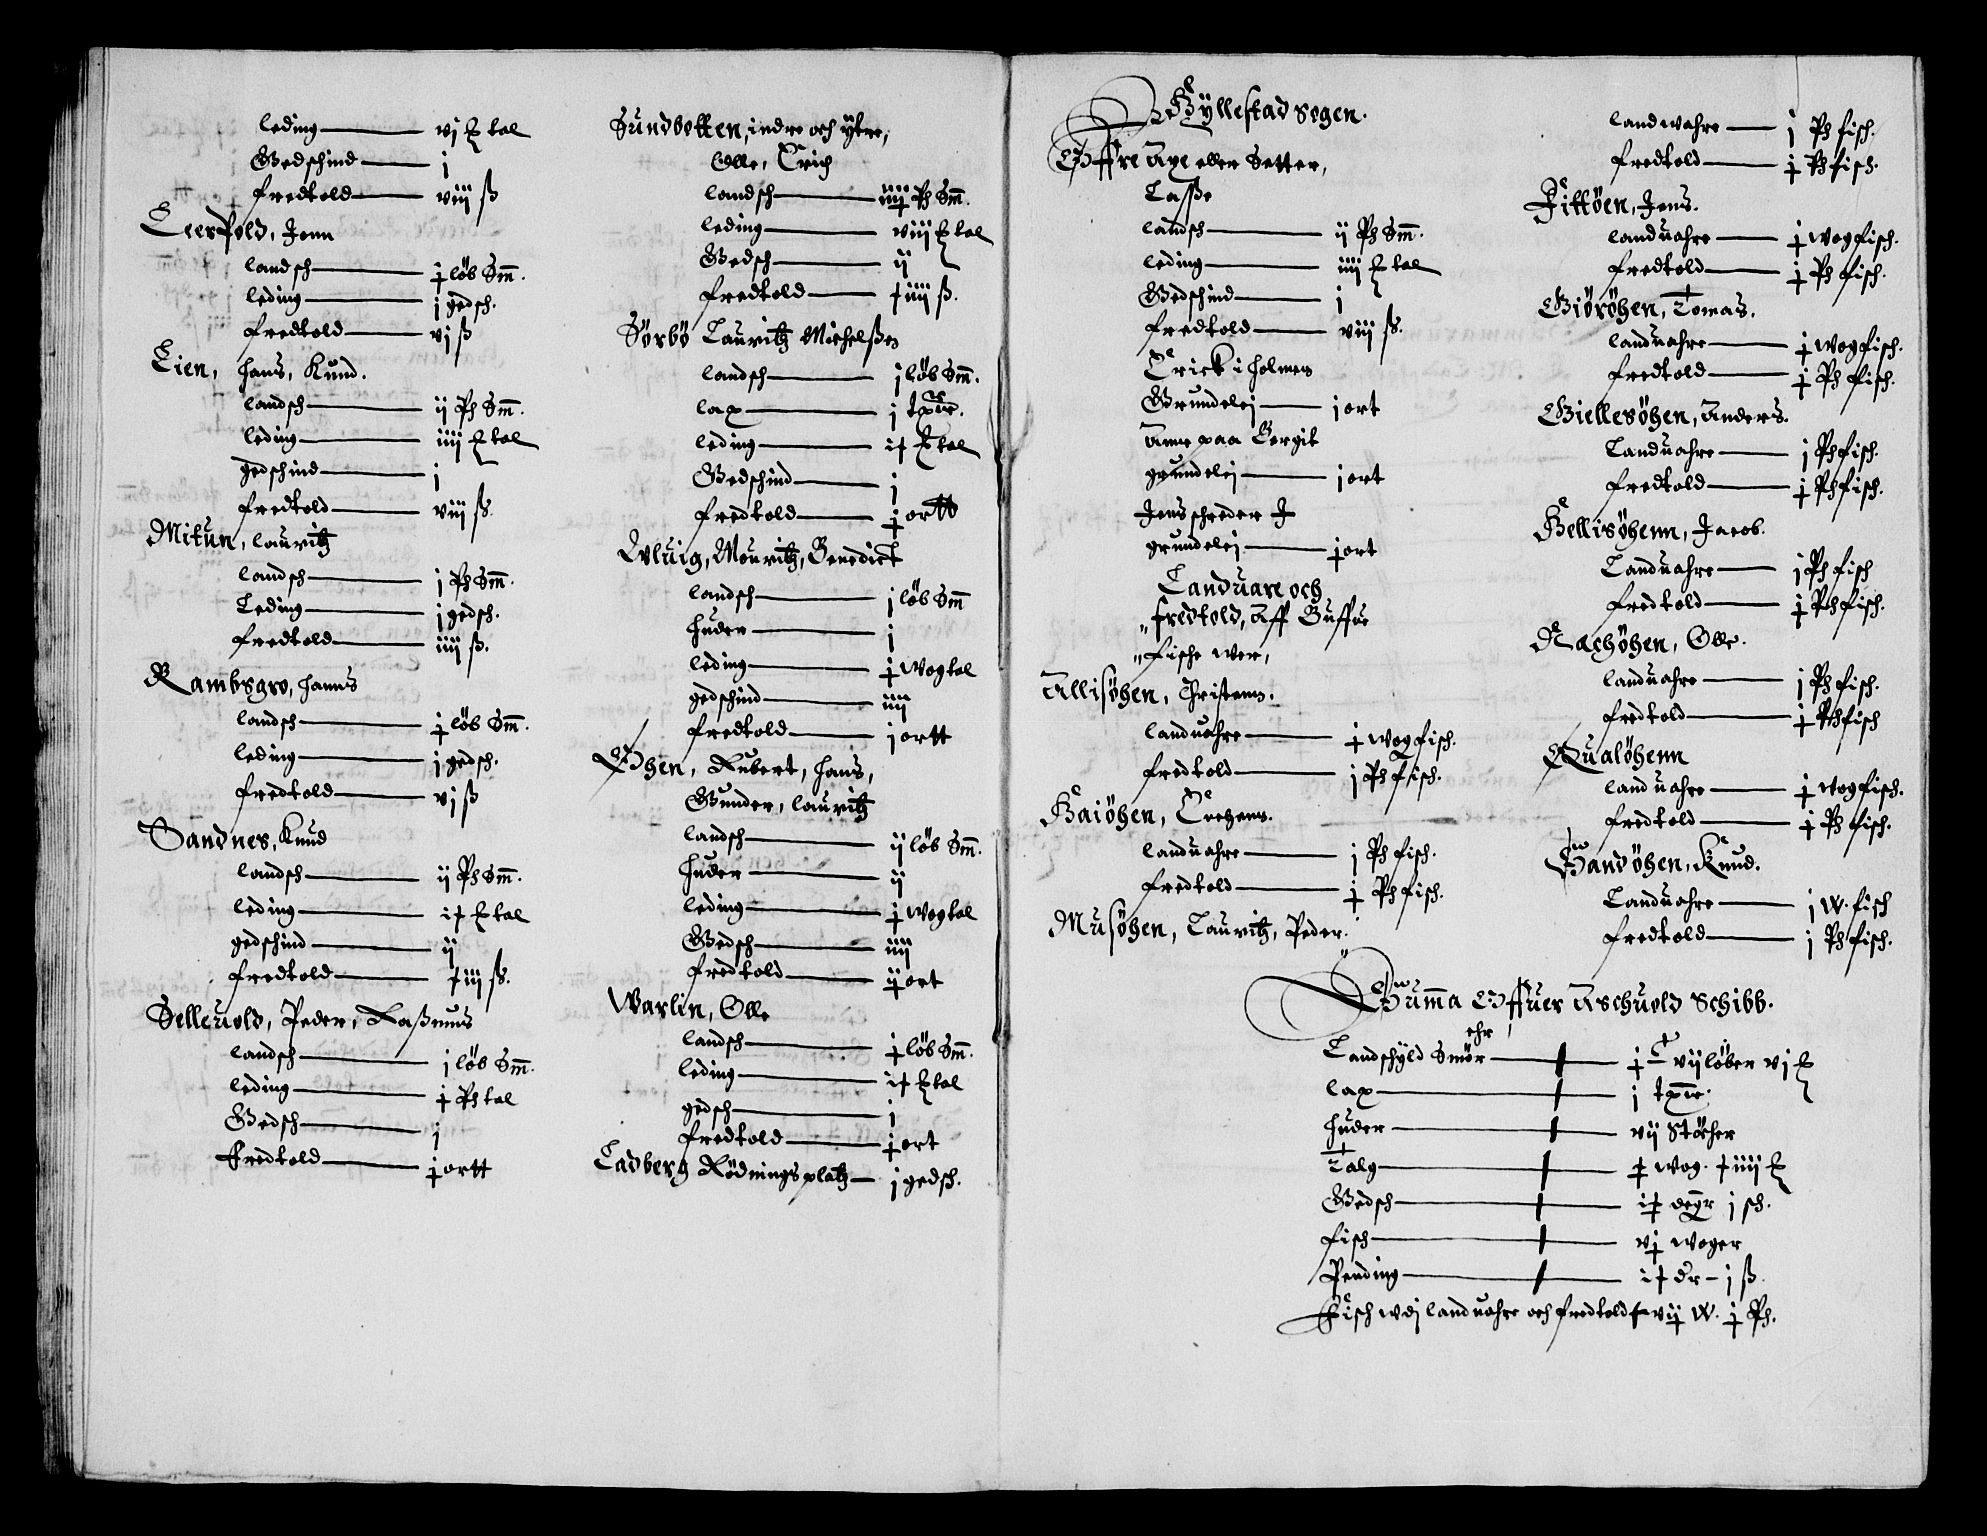 leding — vj tal
Gedschind — j
fredtold — viij ß
Leerfold, Jonn
landsch — j løb Sm̄.
leding — j gedsch.
fredtold — vj ß
Lien, Hans, Knud.
landsch — ij Ph Sm̄.
leding — iiij tal
gedschind — j
fredtold — viij ß.
Mitun, lauritz
landsch — j Ph Sm̄.
Leding — j gedsch.
fredtold — iiij ß.
Rambsgro, Hanns
landsch — j løb Sm̄.
leding — j gedsch.
fredtold — vj ß
Sandnes, Knud
landsch — ij Ph Sm̄.
leding — tal
gedschind — ij
fredtold — ß.
Selleuold, Peder, Raßmus
landsch — j løb Sm̄.
leding — j Ph tal
Gedsch — j
Fredtold — j ortt
Sundbotten, indre och ÿtre,
Olle, Erich
landsch — iiij Ph Sm̄.
leding — viij tal
Gedsch — ij
fredtold — ß.
Sørbø Lauritz Michelßen
landsch — j løb Sm̄.
lax — j
leding — tal
Gedschind — j
fredtold — j ortt
Mouritz, Benedict
landsch — j løb Sm̄
Huder — j
leding — j wog tal
gedschind — iiij
fredtold — j ortt
Øhen, Rubert, Hans,
Gunder, lauritz
landsch — ij løb Sm̄.
Huder — ij
leding — j wog tal
Gedsch — iiij
fredtold — ij ort
Warlin, Olle
landsch — j løb Sm̄.
leding — tal
gedsch — j
fredtold — j ort
Ladberg Rødnings platz — j gedsch.
Hÿllestad sogen.
Øffre Axe eller Setter,
Laße
landsch — ij Ph Sm̄.
leding — iiij tal
Gedschind — j
fredtold — viij ß.
Erick i Holmen
Grundelej — j ort
Anne paa Bergit
grundelej — j ort
Jens schreder
grundelej — j ort
Landuare och
fredtold, Aff Buffue
fische wer,
Allisøhen, Christenn.
landuahre — j wog fisch.
fredtold — j Ph fisch.
Haiøhen,
landuahre — j Ph fisch.
fredtold — j Ph fisch.
Musøhen, Lauritz, Peder.
landwahre — j Ph fisch.
fredtold — j Ph fisch.
Fittøen, Jens.
landuahre — j wog fisch.
fredtold — j Ph fisch.
Giørøhen, Tomas.
landuahre — j wog fisch.
fredtold — j Ph fisch.
Giellesøhen, Anders.
Landuahre — j Ph fisch.
fredtold — j Ph fisch.
Hellisøhenn, Jacob.
Landuahre — j Ph fisch
fredtold — j Ph fisch.
Rachøhen, Olle.
landuahre — j Ph fisch.
fredtold — j Ph fisch
Qualøhenn
landuahre — j wog fisch.
fredtold — j Ph fisch.
Sandøhen, Knud.
Landuahre — j W. fisch
fredtold — j Ph fisch.
Summa Øffuer Aschuold Schibb.
Landschyld Smør — vij løber vj
lax — j
Huder — vij Støcher
Talg — wog.
Gedsch — degr j sch.
fisch — vj woger
Pending — dr – j ß.
Fisch wdj landuahre och fredtold vij W. j Ph.